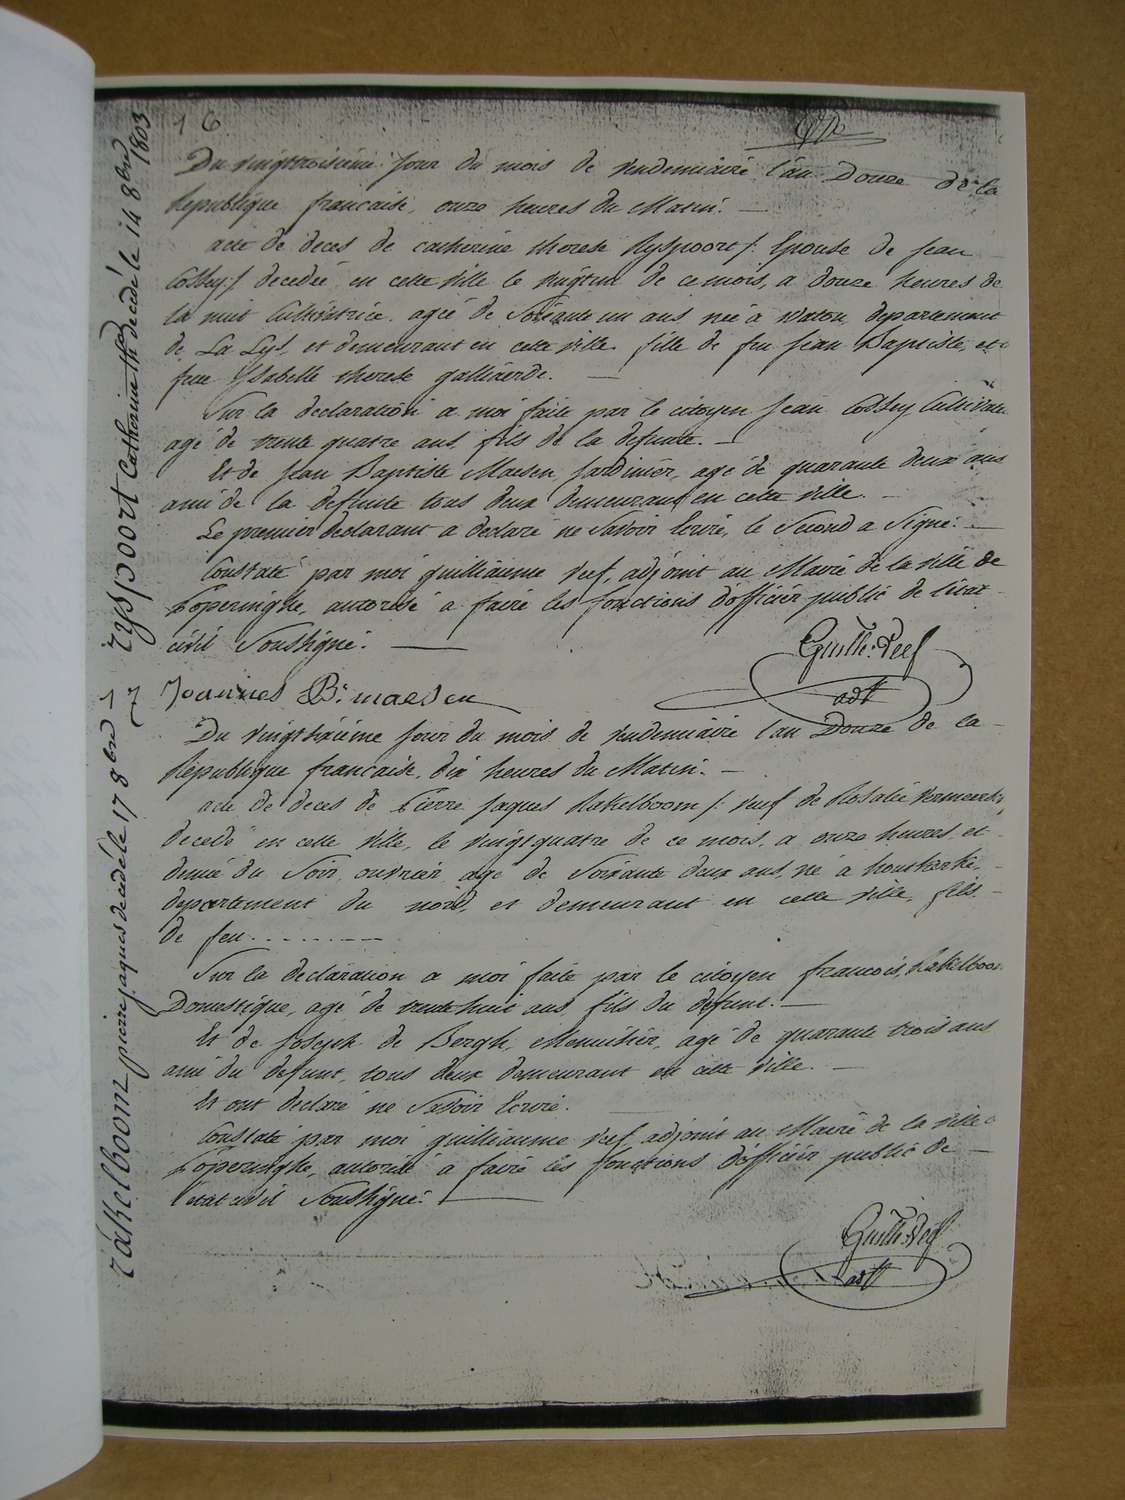 16
Du vingttroisieme Jour du mois de vendemiaire l'an Douze de la
Republique francaise, onze heures du Matin. —
acte de deces de catherine therese Ryspoort /: Epouse de Jean
Cossey/ decedée en cette ville le vingtun de ce mois, a douze heures de
la nuit Cultivatrice, agée de Soixante un ans née à Watou, departement
de La Lys, et demeurant en cette ville fille de feu Jean Baptiste, et
feue Ysabelle therese gallicerde. —
Sur la declaration a moi faite par le citoyen Jean Cossey Cultivate
agé de trente quatre ans, fils de la defunte. —
Et de Jean Baptiste Maesen Jardinier, agé de quarante deux ans
ami de la defunte tous deux demeurant en cette ville. —
Le premier declarant a declaré ne Savoir Ecrire, le Second a Signé. —
Constaté par moi guilliaume Veef, adjoint au Maire de la ville de
Poperinghe, autorisé a faire les fonctions d'officier public de l'etat
civil Soussigné. —
Guilh: Veef
adt
Joannes Bt. maesen
Du vingtsixieme Jour du mois de vendemiaire l'an Douze de la
Republique francaise, dix heures du Matin. —
acte de deces de Pierre Jaques Rakelboom /: veuf de Rosalie Vermeersch
decedé en cette ville, le vingtquatre de ce mois, a onze heures et
demie du Soir, ouvrier agé de Soixante deux ans, né a houtkerke,
departement du nord, et demeurant en cette ville, fils
de feu ........
Sur la declaration a moi faite par le citoyen francois Rakelboom
Domestique, agé de trente huit ans fils du defunt. —
Et de Joseph de Bergh, Menuisier, agé de quarante trois ans
ami du defunt, tous deux demeurant en cette ville. —
Et ont declaré ne Savoir Ecrire.
Constaté par moi guilliaume Veef, adjoint au Maire de la ville
Poperinghe, autorisé a faire les fonctions d'officier public de
l'etat civil Soussigné. —
Guilh: Veef
adt
ryspoort Catherine the decedé le 14 8bre 1803
17
rakelboom pierre jaques decedé le 17 8bre